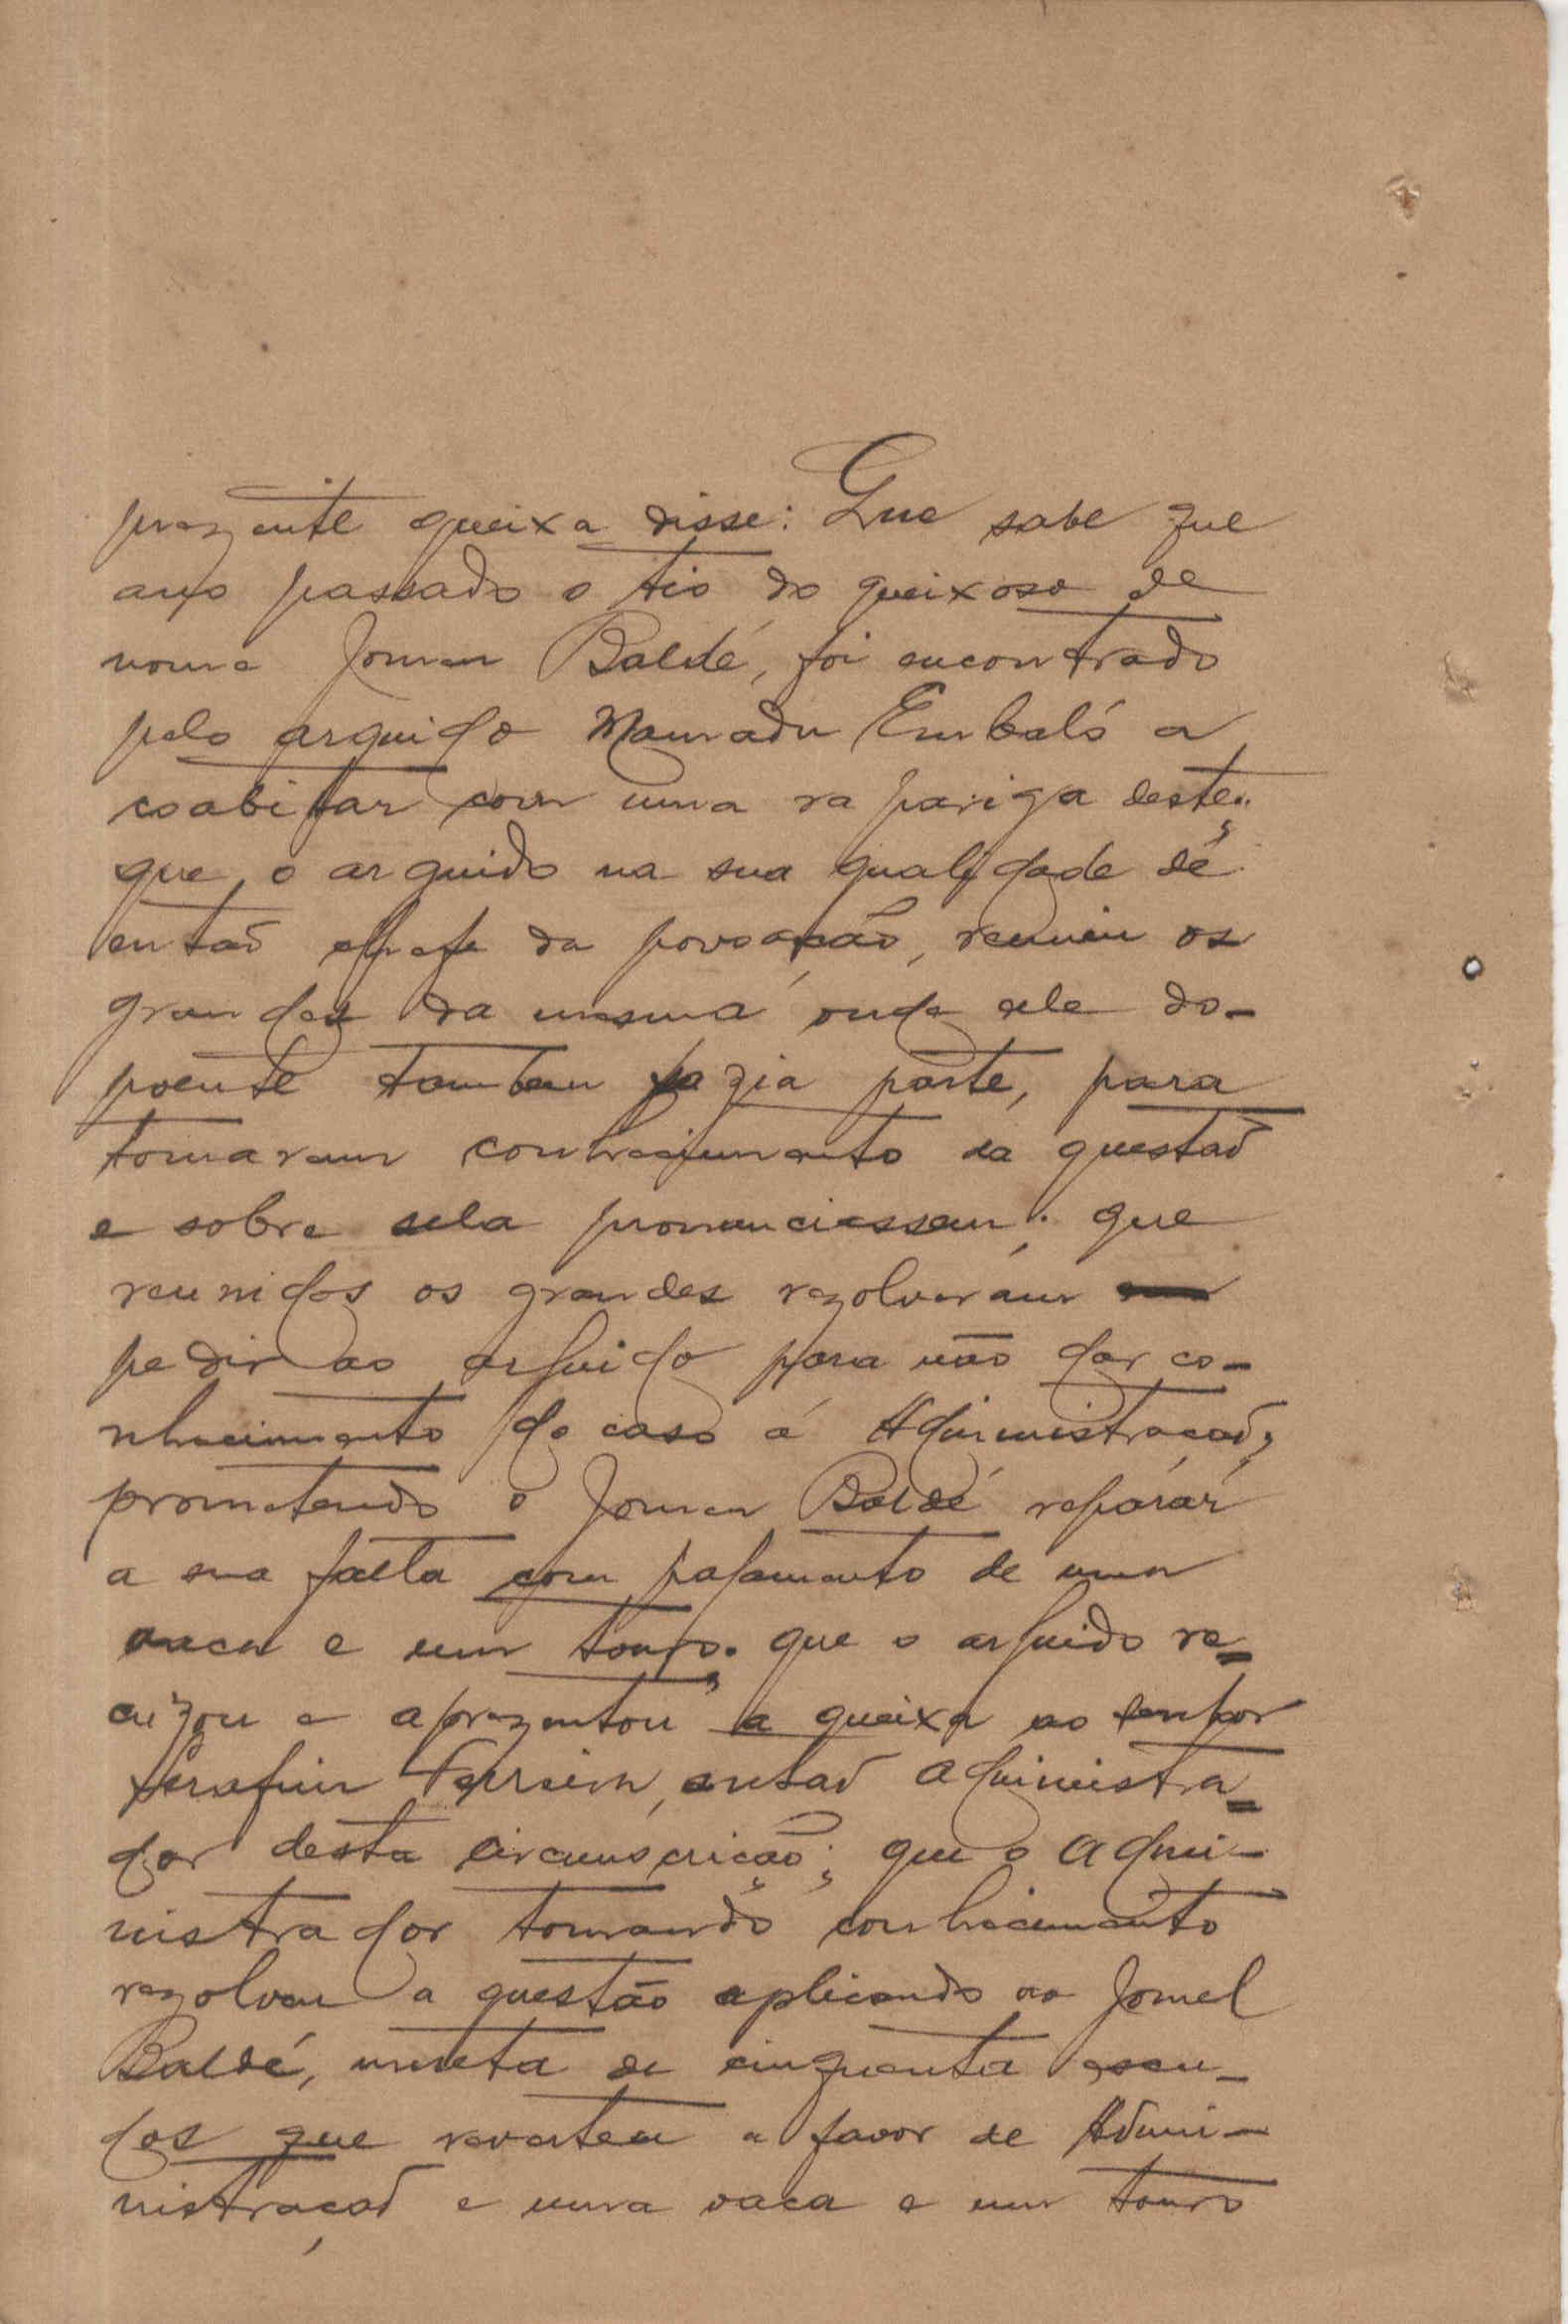 prezente queixa disse: Que sabe que
ano passado o tio do queixoso de
nome Jomen Baldé, foi encontrado
pelo arguido Mamadu Embaló a
coabitar com uma rapariga deste;
que o arguido na sua qualidade de
entaõ chefe da povoação, reuniu os
grandes da mesma onde ele do-
poente tambem fazia parte, para
tomarem conhecimento da questaõ
e sobre ela pronunciassem; que
reunidos os grandes rezolveram
pedir ao arguido para não dar co-
nhecimento do caso á Administraçaõ,
prometendo o Jomen Baldé reparár
a sua falta com pagamento de uma
vaca e um touro; que o arguido re-
cuzou e aprezentou a queixa ao senhor
Serafim Ferreira, entaõ administra-
dor desta circunscrição; que o admi-
nistrador tomando conhecimento
rezolveu a questão aplicando ao Jomel
Baldé, multa de cinquenta escu-
dos que reverteu a favor de Admi-
nistraçaõ e uma vaca e um touro